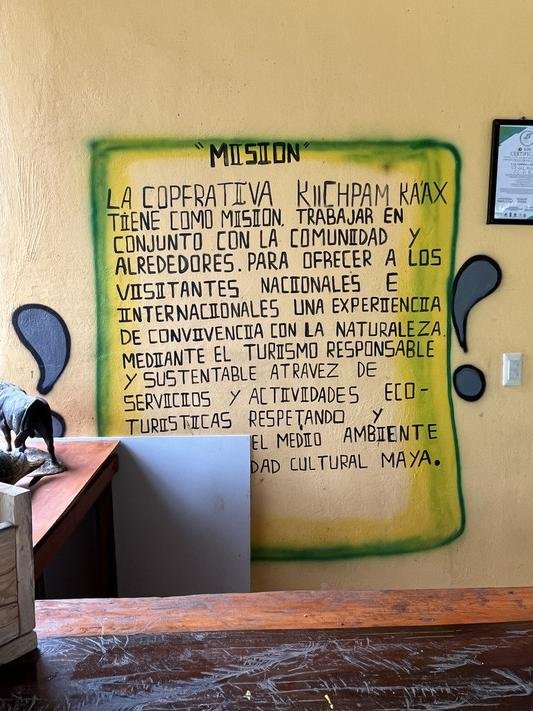 "MISION"
LA COPERATIVA KIICHPAM KÁAX
TIENE COMO MISION, TRABAJAR EN
CONJUNTO CON LA COMUNIDAD Y
ALREDEDORES. PARA OFRECER A LOS
VISITANTES NACIONALES E
INTERNACIONALES UNA EXPERIENCIA
DE CONVIVENCIA CON LA NATURALEZA.
MEDIANTE EL TURISMO RESPONSABLE
Y SUSTENTABLE ATRAVEZ DE
SERVICIOS Y ACTIVIDADES ECO-
TURISTICAS RESPETANDO Y
EL MEDIO AMBIENTE
DAD CULTURAL MAYA.